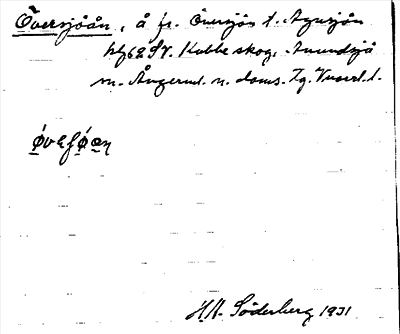 Översjöån, å fr. Översjön t. Agnsjön
hfl 62 SV. Kubbe skog, Anundsjö
sn. Ångerml. n. doms. Tg. Vnorrl. l.
H.M. Söderberg 1931